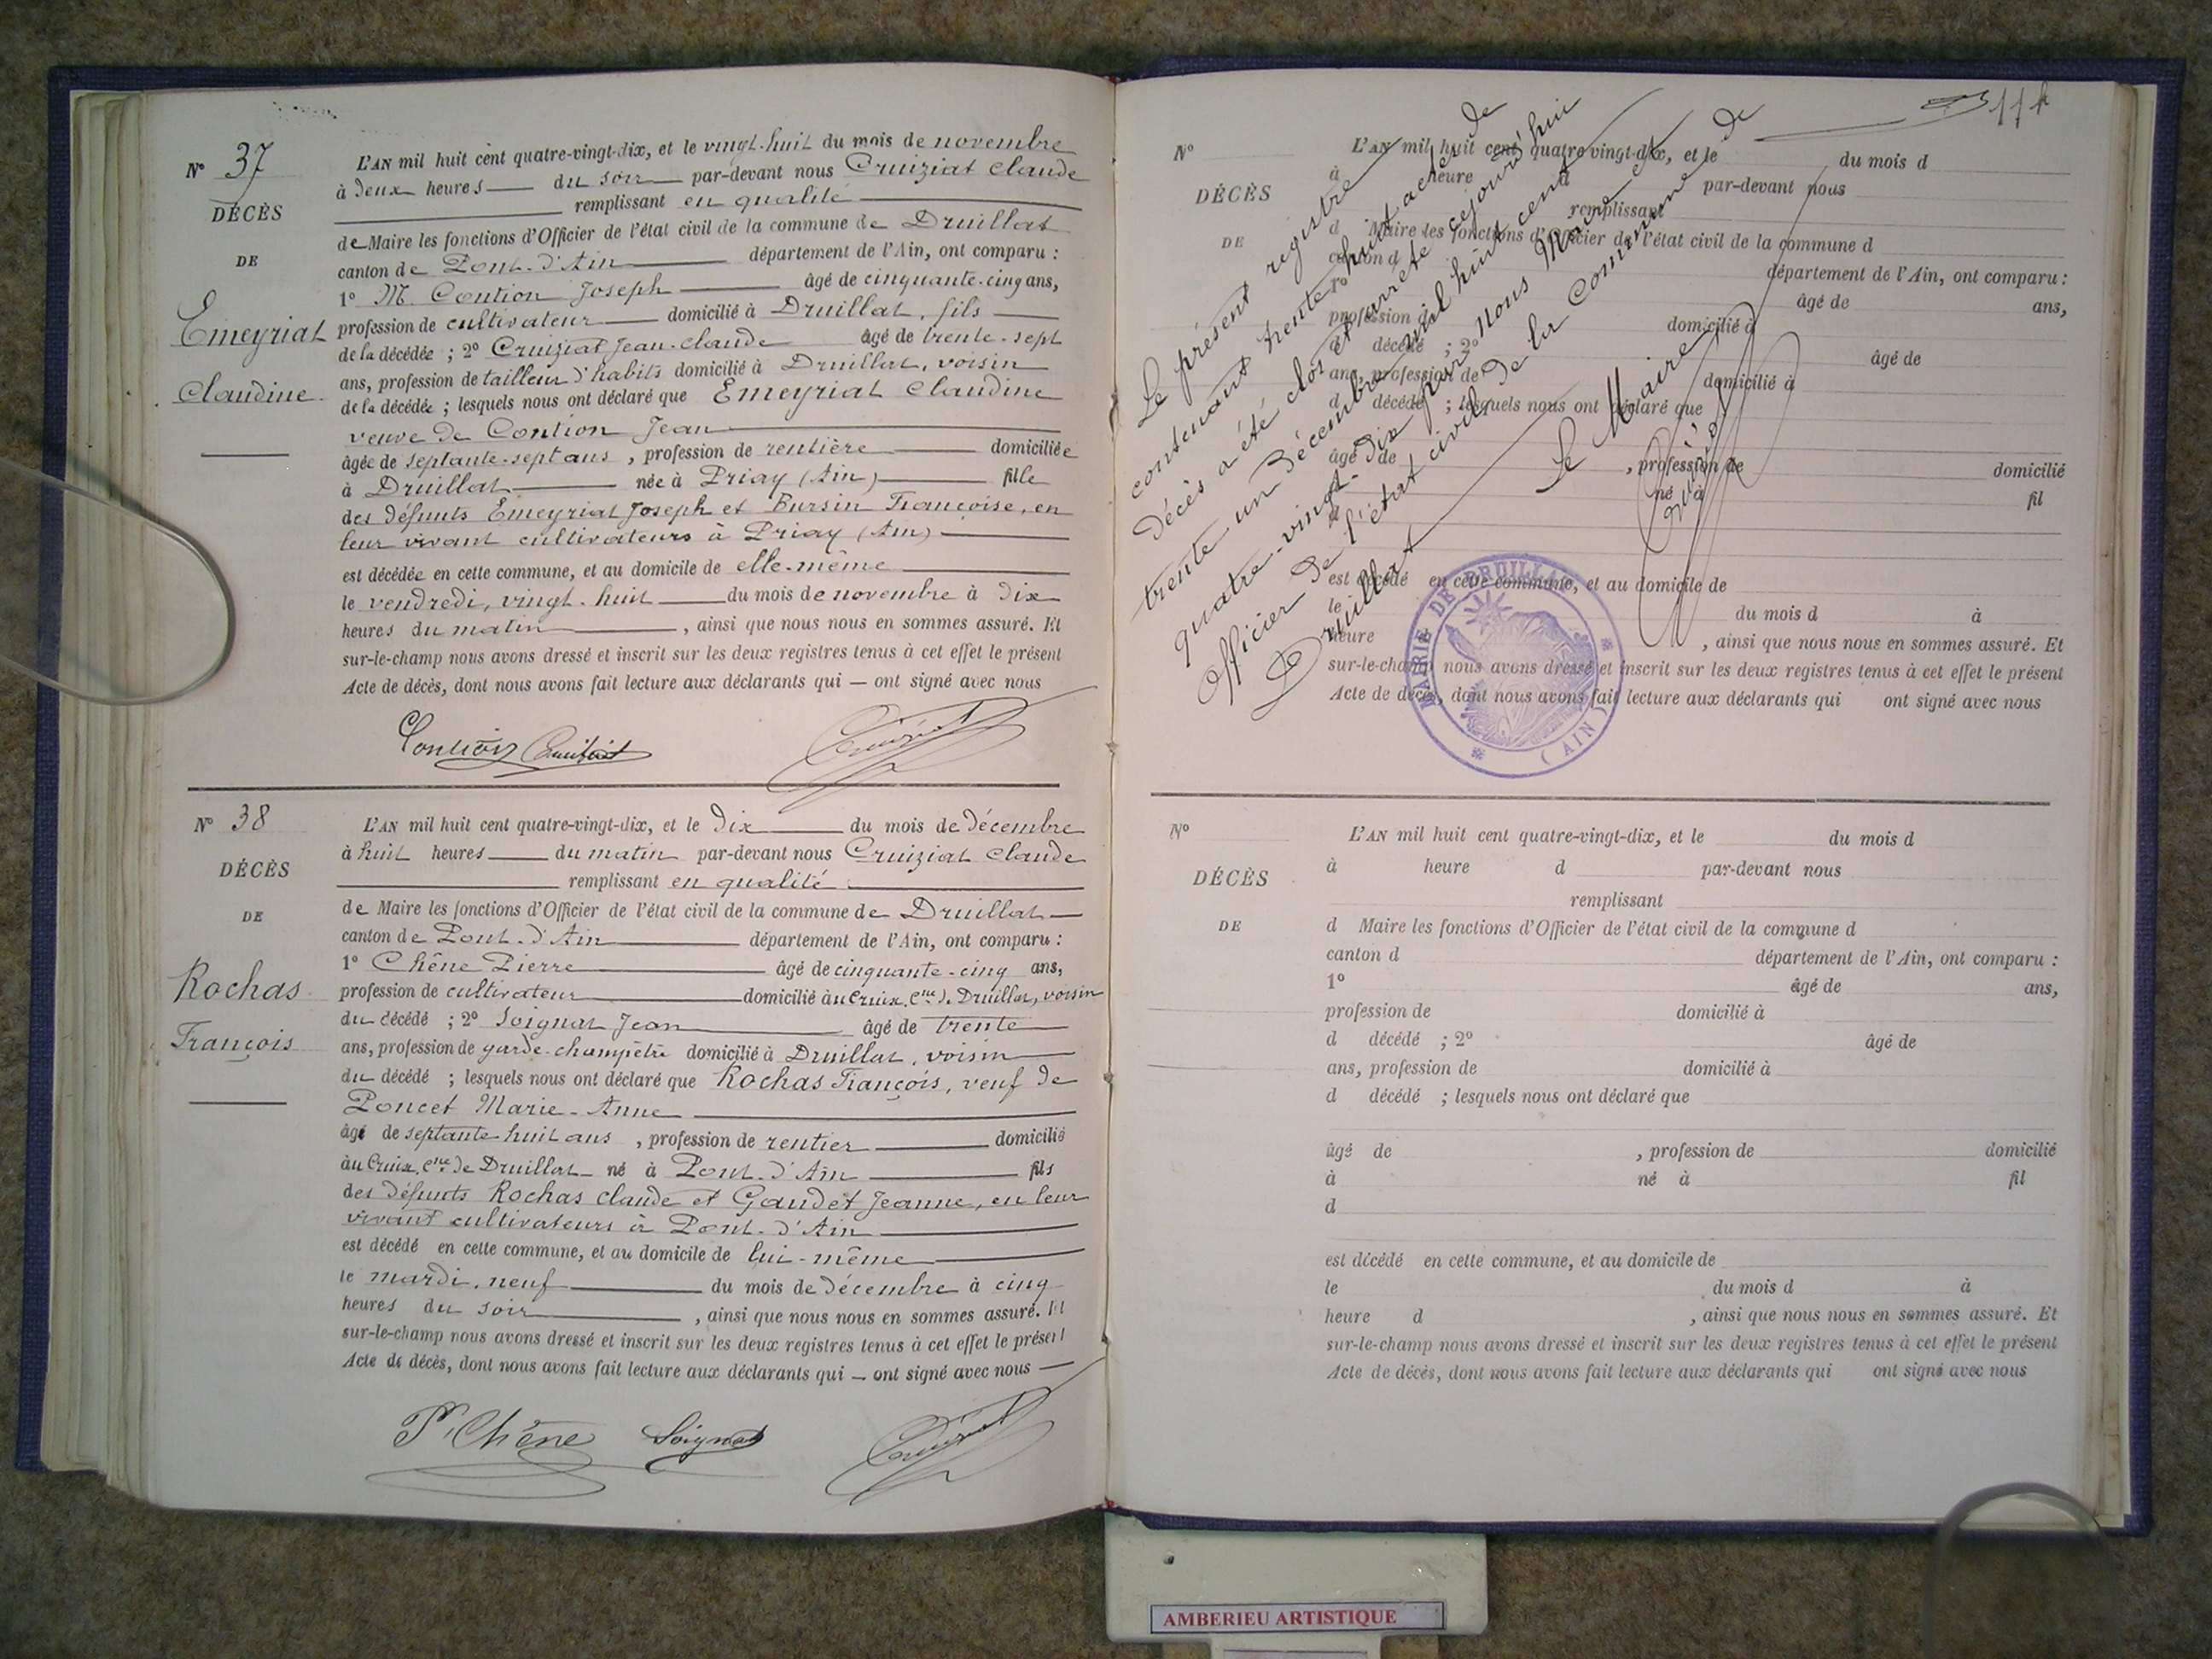 N° 37
DÉCÈS
DE
Emeyriat
Claudine
L'AN mil huit cent quatre-vingt-dix, et le vingt-huit du mois de novembre
à deux heures du soir par-devant nous Cruiziat Claude
remplissant en qualité
de Maire les fonctions d'Officier de l'état civil de la commune de Druillat
canton de Pont-d'Ain département de l'Ain, ont comparu :
1° M. Contion Joseph âgé de cinquante-cinq ans,
profession de cultivateur domicilié à Druillat, fils
de la décédée ; 2° Cruiziat Jean-Claude âgé de trente-sept
ans, profession de tailleur d'habits domicilié à Druillat, voisin
de la décédée ; lesquels nous ont déclaré que Emeyriat Claudine
veuve de Contion Jean
âgée de septante-sept ans, profession de rentière domiciliée
à Druillat née à Priay (Ain) fille
des défunts Emeyriat Joseph et Bursin Françoise, en
leur vivant cultivateurs à Priay (Ain)
est décédée en cette commune, et au domicile de elle-même
le vendredi, vingt-huit du mois de novembre à dix
heures du matin, ainsi que nous nous en sommes assuré. Et
sur-le-champ nous avons dressé et inscrit sur les deux registres tenus à cet effet le présent
Acte de décès, dont nous avons fait lecture aux déclarants qui — ont signé avec nous
Contion Cruiziat Cruiziat
N° 38
DÉCÈS
DE
Rochas
François
L'AN mil huit cent quatre-vingt-dix, et le dix du mois de décembre
à huit heures du matin par-devant nous Cruiziat Claude
remplissant en qualité
de Maire les fonctions d'Officier de l'état civil de la commune de Druillat
canton de Pont-d'Ain département de l'Ain, ont comparu :
1° Chêne Pierre âgé de cinquante-cinq ans,
profession de cultivateur domicilié au Cruix, Cne de Druillat, voisin
du décédé ; 2° Soignat Jean âgé de trente
ans, profession de garde-champêtre domicilié à Druillat, voisin
du décédé ; lesquels nous ont déclaré que Rochas François, veuf de
Poncet Marie-Anne
âgé de septante-huit ans, profession de rentier domicilié
au Cruix, Cne de Druillat né à Pont-d'Ain fils
des défunts Rochas Claude et Gaudet Jeanne, en leur
vivant cultivateurs à Pont-d'Ain
est décédé en cette commune, et au domicile de lui-même
le mardi, neuf du mois de décembre à cinq
heures du soir, ainsi que nous nous en sommes assuré. Et
sur-le-champ nous avons dressé et inscrit sur les deux registres tenus à cet effet le présent
Acte de décès, dont nous avons fait lecture aux déclarants qui — ont signé avec nous
P. Chêne Soignat Cruiziat
N°
DÉCÈS
DE
L'AN mil huit cent quatre-vingt-dix, et le du mois d
à heure d par-devant nous
remplissant
d Maire les fonctions d'Officier de l'état civil de la commune d
canton d département de l'Ain, ont comparu :
1° âgé de ans,
profession de domicilié à
d décédé ; 2° âgé de
ans, profession de domicilié à
d décédé ; lesquels nous ont déclaré que
âgé de , profession de domicilié
né à fil
est décédé en cette commune, et au domicile de
le du mois d à
heure d , ainsi que nous nous en sommes assuré. Et
sur-le-champ nous avons dressé et inscrit sur les deux registres tenus à cet effet le présent
Acte de décès, dont nous avons fait lecture aux déclarants qui ont signé avec nous
Le présent registre
contenant trente huit actes de
Décès a été clos et arrêté cejourd'hui
trente un Décembre mil huit cent
quatre-vingt-dix par Nous Maire et
Officier de l'état civil de la Commune de
Druillat
Le Maire,
Cruiziat
MAIRIE DE DRUILLAT
(AIN)
N°
DÉCÈS
DE
L'AN mil huit cent quatre-vingt-dix, et le du mois d
à heure d par-devant nous
remplissant
d Maire les fonctions d'Officier de l'état civil de la commune d
canton d département de l'Ain, ont comparu :
1° âgé de ans,
profession de domicilié à
d décédé ; 2° âgé de
ans, profession de domicilié à
d décédé ; lesquels nous ont déclaré que
âgé de , profession de domicilié
à né à fil
d
est décédé en cette commune, et au domicile de
le du mois d à
heure d , ainsi que nous nous en sommes assuré. Et
sur-le-champ nous avons dressé et inscrit sur les deux registres tenus à cet effet le présent
Acte de décès, dont nous avons fait lecture aux déclarants qui ont signé avec nous
AMBERIEU ARTISTIQUE